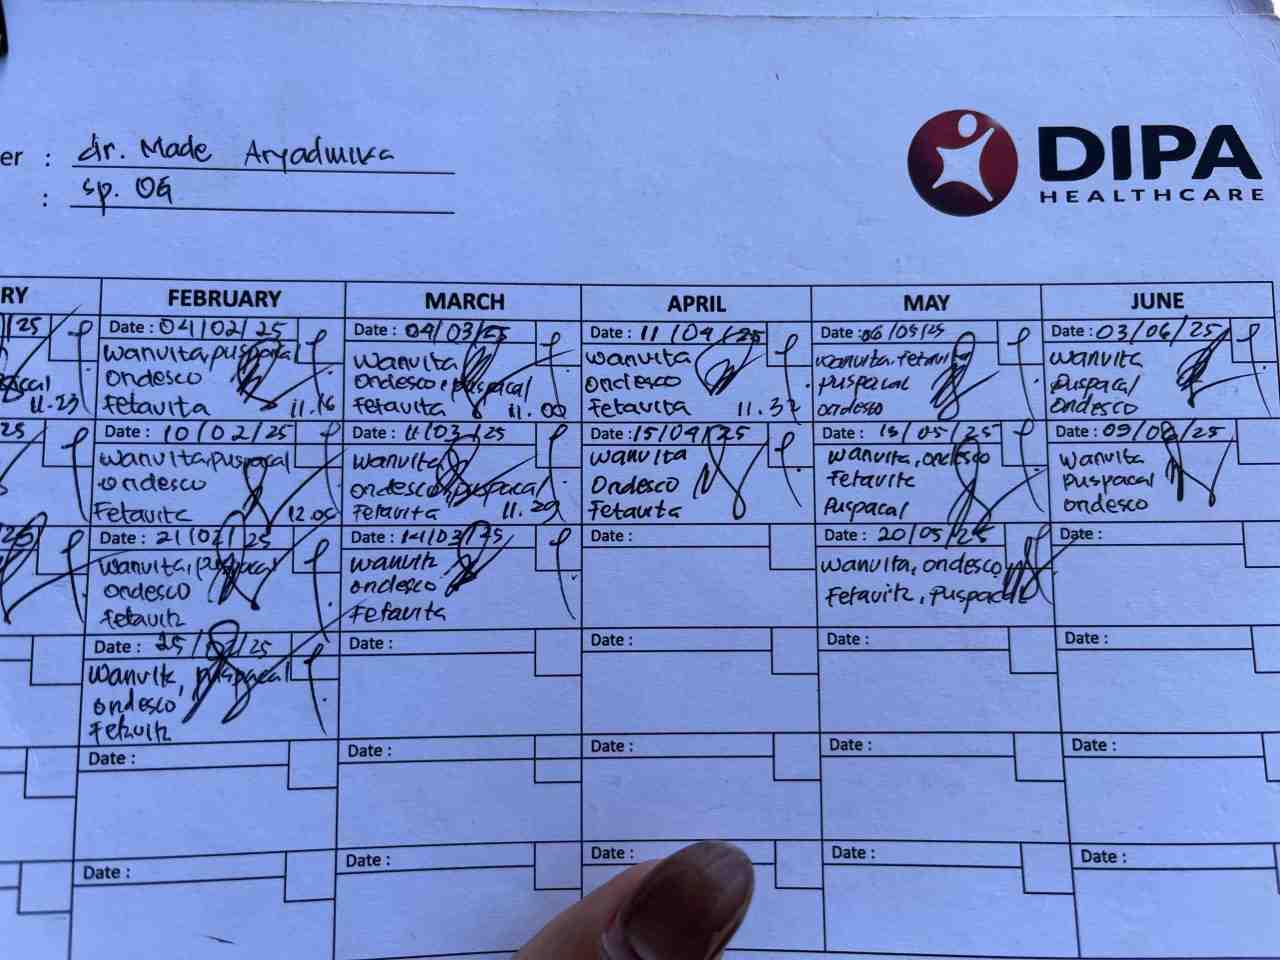 er : dr. Made Aryadmika
: sp. OG
DIPA
HEALTHCARE
RY
FEBRUARY
MARCH
APRIL
MAY
JUNE
/25
pacal
11.23
Date : 04/02/25
wanvita, puspacal
ondesco
fetavita 11.16
Date : 04/03/25
wanvita
ondesco, puspacal
fetavita 11.00
Date : 11/04/25
wanvita
ondesco
fetavita 11.32
Date : 06/05/25
wanvita, fetavita
puspacal
ondesco
Date : 03/06/25
wanvita
puspacal
ondesco
25
Date : 10/02/25
wanvita, puspacal
ondesco
Fetavita 12.00
Date : 11/03/25
wanvita
ondesco, puspacal
Fetavita 11.29
Date : 15/04/25
wanvita
Ondesco
Fetavita
Date : 13/05/25
wanvita, ondesco
Fetavita
Puspacal
Date : 09/06/25
wanvita
puspacal
ondesco
25
Date : 21/02/25
wanvita, puspacal
ondesco
fetavita
Date : 14/03/25
wanvita
ondesco
Fetavita
Date :
Date : 20/05/25
wanvita, ondesco
Fetavita, puspacal
Date :
Date : 25/02/25
wanvita, puspacal
ondesco,
Fetavita
Date :
Date :
Date :
Date :
Date :
Date :
Date :
Date :
Date :
Date :
Date :
Date :
Date :
Date :